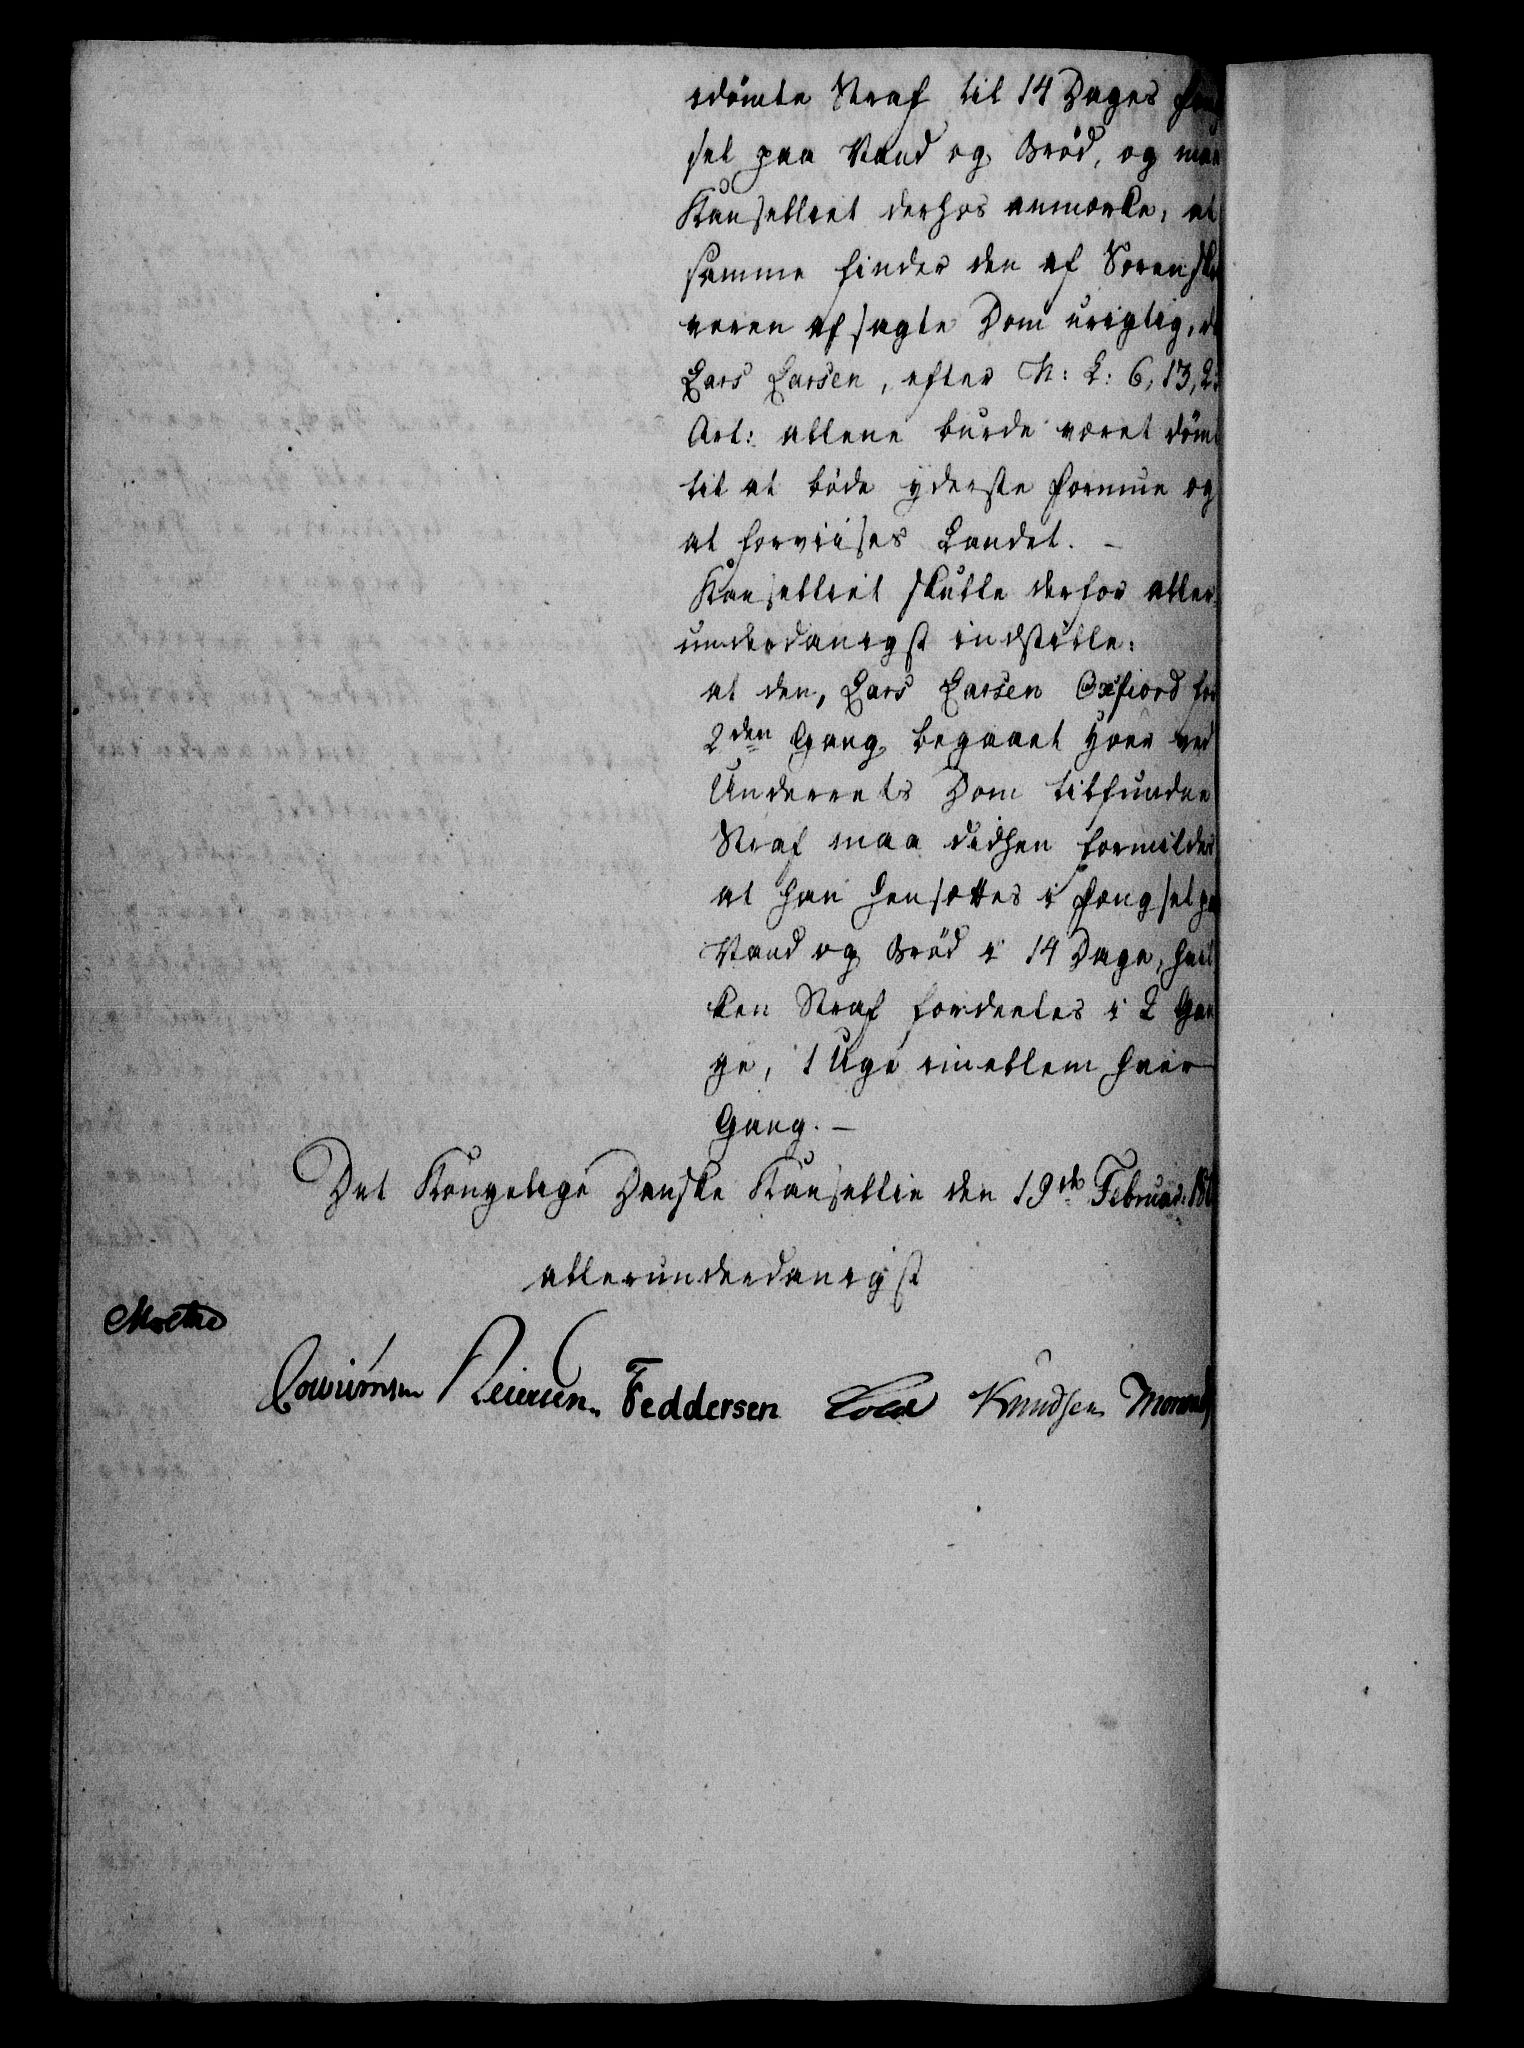 idömte Straf til 14 Dages Fæng
sel paa Vand og Brød, og maa
Kanselliet derhos anmærke, at
samme finder den af Sorenskri
veren afsagte Dom urigtig, da
Lars Larsen, efter N: L: 6, 13, 23
Art: allene burde været dömt
til at böde yderste Formue og
at forviises Landet. –
Kanselliet skulle derfor aller
underdanigst indstille:
at den, Lars Larsen Oxfiord for
2den Gang begaaet Hoer ved
Underrets Dom tilfundne
Straf maa didhen formildes
at han hensættes i Fængsel paa
Vand og Brød i 14 Dage, hvil
ken Straf fordeeles i 2 Gan
ge, 1 Uge imellem hver
Gang. –
Det Kongelige Danske Kansellie den 19de Februar: 18
allerunderdanigst
Moltke
Reiersen Feddersen Cold Knudsen Monrad